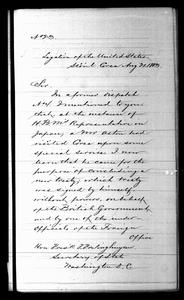 No 28
Legation of the United States
Söul Corea Aug 21, 1883
Sir
In a former dispatch
No 4. I mentioned to you
that, at the instance of
H. B. M's Representative in
Japan, a Mr Aston had
visited Corea upon some
special service. I now
learn that he came for the
purpose of concluding a
new treaty, which treaty
was signed by himself
without power, on behalf
of the British Government,
and by one of the under
Officials of the Foreign
Office
Hon. Fred'k T. Frelinghuysen
Secretary of State
Washington D. C.